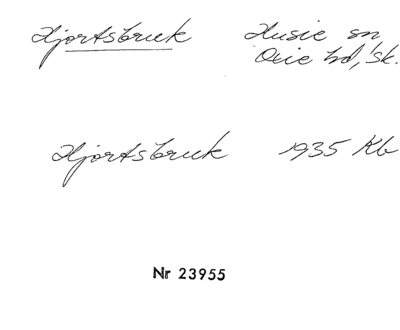 Hjortsbruk Husie sn
Oxie hd, Sk.
Hjortsbruk 1935 Kb
Nr 23955